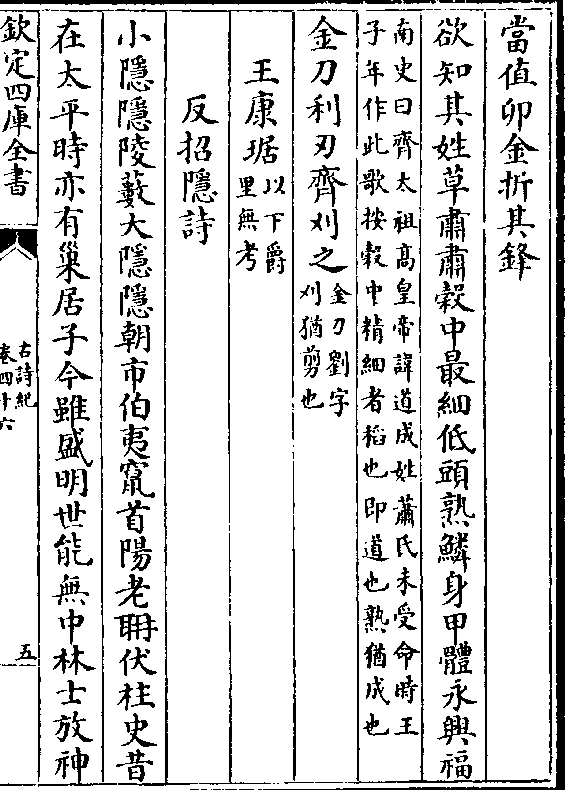 當值卯金折其鋒
欲知其姓草肅肅穀中最細低頭熟鱗身甲體永興福
南史曰齊太祖高皇帝諱道成姓蕭氏未受命時王
子年作此歌按穀中精細者稻也即道也熟猶成也
金刀利刃齊刈之金刀劉字
刈猶剪也
王康琚以下爵
里無考
反招隱詩
小隱隱陵藪大隱隱朝市伯夷竄首陽老聃伏柱史昔
在太平時亦有巢居子今雖盛明世能無中林士放神
欽定四庫全書
古詩紀
卷四十六
五